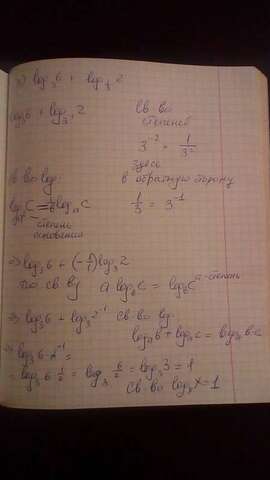 log₃6 + log 2
log₃6 + log₃₋₁ 2 св-во
степеней
3⁻² = 1/3²
здесь
св-во log: в обратную сторону
log C = log C 1/3 = 3⁻¹
степень
основания
=> log₃6 + (-1/1)log₃2
по св-ву a log_b c = log_b c^a - степень
=> log₃6 + log₃2⁻¹ св-во log:
log_a b + log_a c = log_a b·c
=> log₃6·2⁻¹ =
= log₃6·1/2 = log₃ 6/2 = log₃3 = 1
св-во log_x x = 1